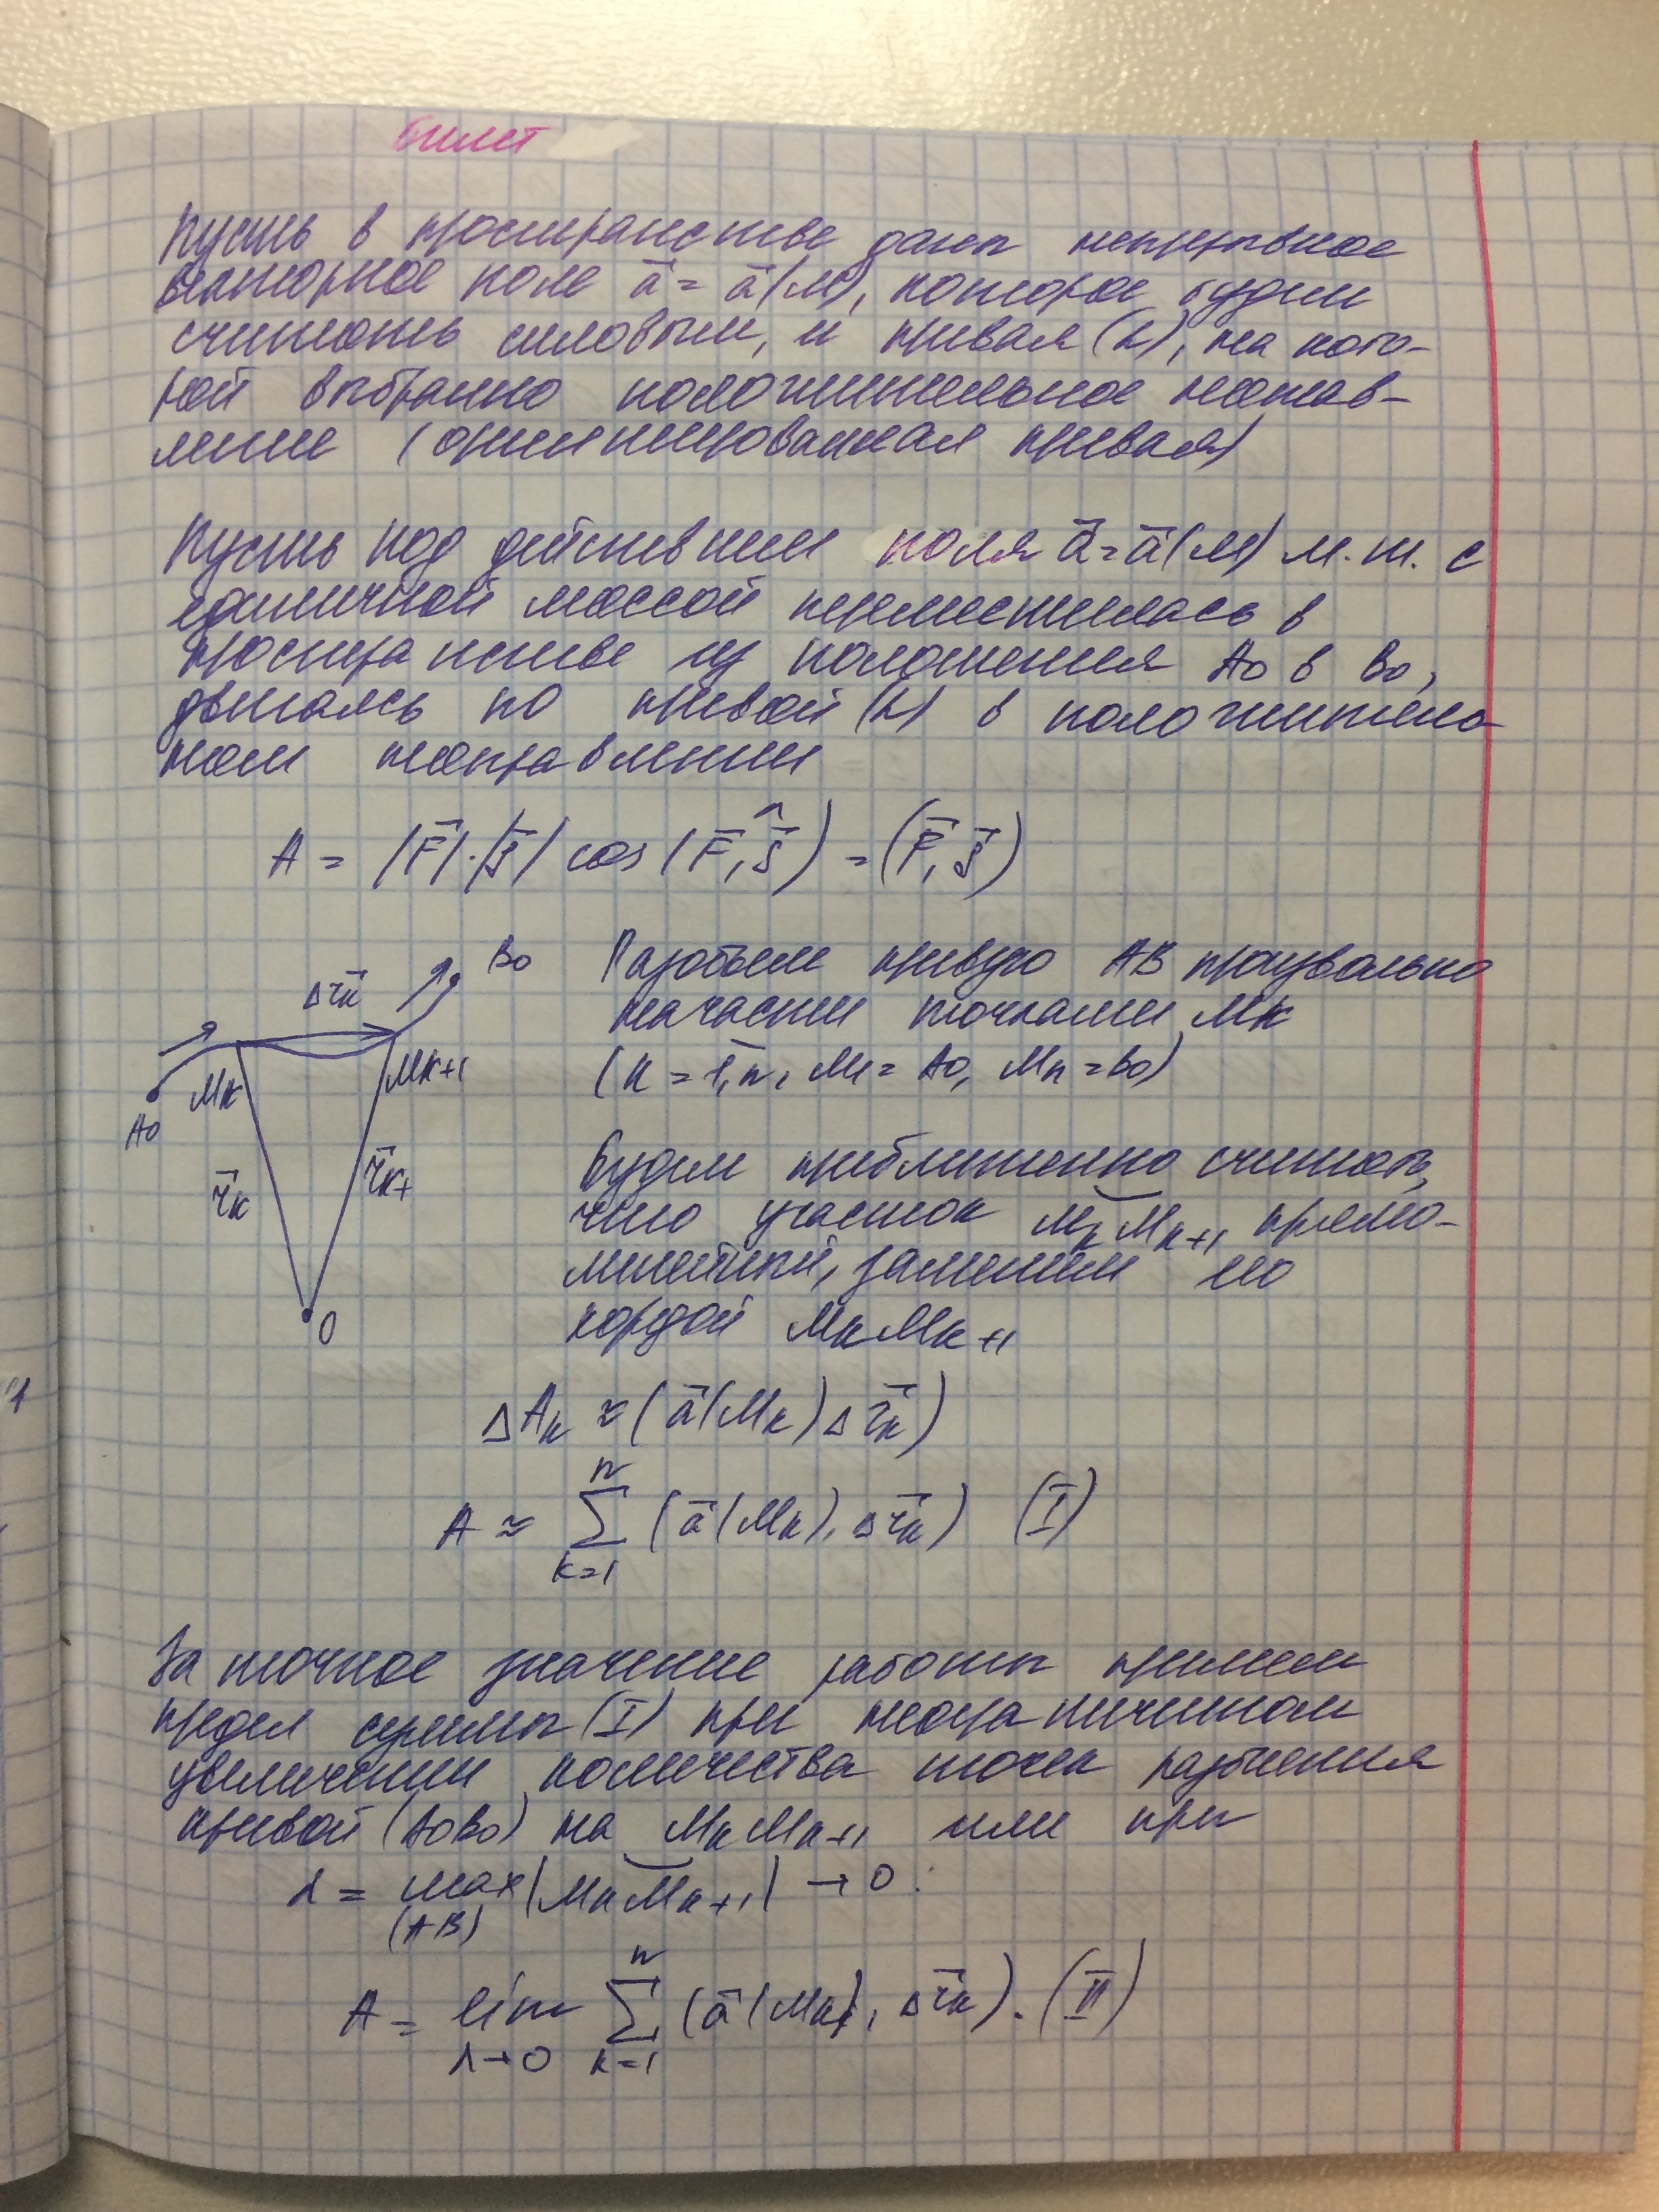 билет
Пусть в пространстве дано непрерывное
векторное поле a̅ = a̅(M), которое будем
считать силовым, и кривая (L), на кото-
рой выбранно положительное направ-
ление (ориентированная кривая)
Пусть под действием поля a̅ = a̅(M) м.т. с
единичной массой переместилась в
пространстве из положения A₀ в B₀,
двигаясь по кривой (L) в положительно
ном направлении
A = |F̅|·|S̅| cos(F̅,^S̅) = (F̅, S̅)
B₀
Δr̅ₖ
Mₖ
Mₖ₊₁
A₀
r̅ₖ
r̅ₖ₊
O
Разобьем кривую AB произвольно
на части точками Mₖ
(k = 1,n, M₁ = A₀, Mₙ = B₀)
Будем приближенно считать,
что участок MₖMₖ₊₁ прямо-
линейный, заменем его
хордой MₖMₖ₊₁
ΔAₖ ≈ (a̅(Mₖ) Δr̅ₖ)
A ≈ ∑ₖ₌₁ⁿ (a̅(Mₖ), Δr̅ₖ) (I)
За точное значение работы примем
предел суммы (I) при неограниченном
увеличении количества точек разбиения
кривой (A₀B₀) на MₖMₖ₊₁ или при
λ = max(AB) |MₖMₖ₊₁| → 0 :
A = lim λ→0 ∑ₖ₌₁ⁿ (a̅(Mₖ), Δr̅ₖ). (II)